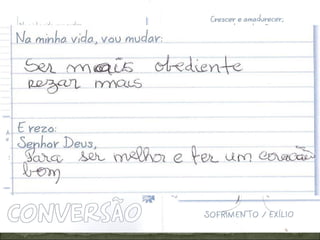 Crescer e amadurecer,
Na minha vida, vou mudar:
Ser mais obediente
rezar mais
E rezo:
Senhor Deus,
Para ser melhor e ter um coração
bom
CONVERSÃO
SOFRIMENTO / EXÍLIO